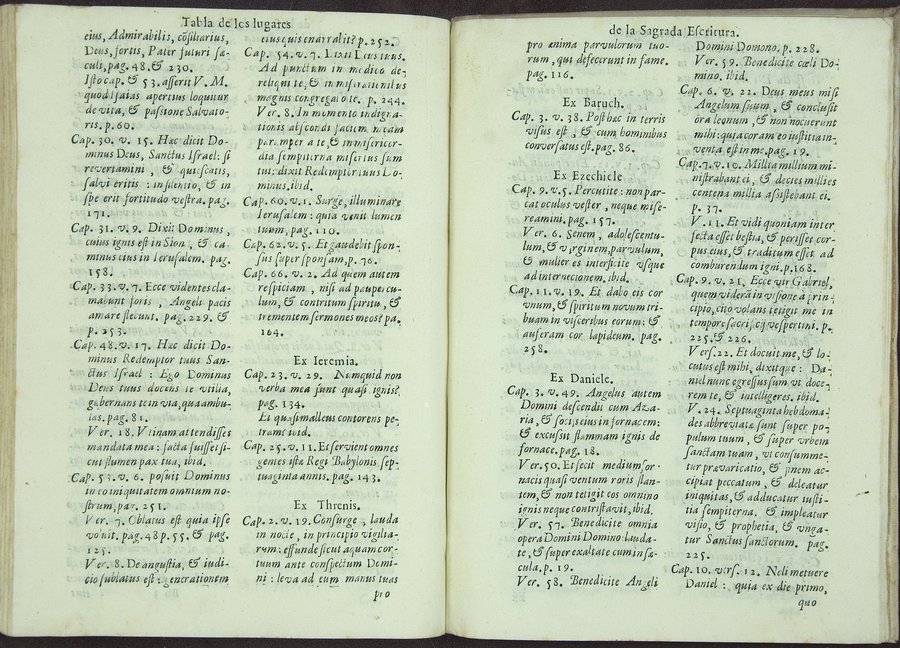 Tabla de los lugares
eius, Admirabilis, cõsiliarius,
Deus, fortis, Pater futuri sæ-
culi, pag. 48. & 230.
Isto cap. & 53. asserit V. M.
quod Isaias apertius loquitur
de vita, & passione Salvato-
ris. p. 60.
Cap. 30. v. 15. Hæc dicit Do-
minus Deus, Sanctus Israel: si
revertamini, & quiescatis,
salvi eritis : in silentio, & in
spe erit fortitudo vestra. pag.
171.
Cap. 31. v. 9. Dixit Dominus,
cuius ignis est in Sion, & ca-
minus eius in Ierusalem. pag.
158.
Cap. 33. v. 7. Ecce videntes cla-
mabunt foris, Angeli pacis
amare flebunt. pag. 229. &
p. 253.
Cap. 48. v. 17. Hæc dicit Do-
minus Redemptor tuus San-
ctus Israel : Ego Dominus
Deus tuus docens te utilia,
gubernans te in via, qua ambu-
las. pag. 81.
Ver. 18. Vtinam attendisses
mandata mea : facta fuisset si-
cut flumen pax tua, ibid.
Cap. 53. v. 6. posuit Dominus
in eo iniquitatem omnium no-
strum, pag. 251.
Ver. 7. Oblatus est quia ipse
voluit. pag. 48 p. 55. & pag.
125.
Ver. 8. De angustia, & iudi-
cio sublatus est : generationem
eius quis enarrabit? p. 252.
Cap. 54. v. 7.
Ad punctum in modico de-
reliqui te, & in miserationibus
magnis congregabo te. p. 244.
Ver. 8. In momento indigna-
tionis abscondi faciem meam
parumper a te, & in misericor-
dia sempiterna misertus sum
tui: dixit Redemptor tuus Do-
minus, ibid.
Cap. 60. v. 1. Surge, illuminare
Ierusalem : quia venit lumen
tuum, pag. 110.
Cap. 62. v. 5. Et gaudebit spon-
sus super sponsam, p. 76.
Cap. 66. v. 2. Ad quem autem
respiciam, nisi ad paupercu-
lum, & contritum spiritu, &
trementem sermones meos? pa.
164.
Ex Ieremia.
Cap. 23. v. 29. Numquid non
verba mea sunt quasi ignis?
pag. 134.
Et quasi malleus conterens pe-
tram? ibid.
Cap. 25. v. 11. Et servient omnes
gentes istæ Regi Babylonis sep-
tuaginta annis. pag. 143.
Ex Threnis.
Cap. 2. v. 19. Consurge, lauda
in nocte, in principio vigilia-
rum: effunde sicut aquam cor-
tuum ante conspectum Domi-
ni : leva ad eum manus tuas
pro
de la Sagrada Escritura.
pro anima parvulorum tuo-
rum, qui defecerunt in fame.
pag. 116.
Ex Baruch.
Cap. 3. v. 38. Post hæc in terris
visus est, & cum hominibus
conversatus est. pag. 86.
Ex Ezechiele
Cap. 9. v. 5. Percutite : non par-
cat oculus vester, neque mise-
reamini. pag. 157.
Ver. 6. Senem, adolescentu-
lum, & virginem, parvulum,
& mulieres interficite vsque
ad internecionem. ibid.
Cap. 11. v. 19. Et dabo eis cor
vnum, & spiritum novum tri-
buam in visceribus eorum: &
auferam cor lapideum. pag.
258.
Ex Daniele.
Cap. 3. v. 49. Angelus autem
Domini descendit cum Aza-
ria, & socijs eius in fornacem:
& excussit flammam ignis de
fornace. pag. 18.
Ver. 50. Et fecit medium for-
nacis quasi ventum roris flan-
tem, & non tetigit eos omnino
ignis neque contristavit, ibid.
Ver. 57. Benedicite omnia
opera Domini Domino: lauda-
te, & superexaltate eum in sæ-
cula. p. 19.
Ver. 58. Benedicite Angeli
Domini Domono. p. 228.
Ver. 59. Benedicite cæli Do-
mino. ibid.
Cap. 6. v. 22. Deus meus misit
Angelum suum, & conclusit
ora leonum, & non nocuerunt
mihi: quia coram eo iustitia in-
venta est in me. pag. 19.
Cap. 7. v. 10. Millia millium mi-
nistrabant ei, & decies millies
centena millia assistebant ei.
p. 37.
V. 11. Et vidi quoniam inter
fecta esset bestia, & perisset cor-
pus eius, & traditum esset ad
comburendum igni, p. 168.
Cap. 9. v. 21. Ecce vir Gabriel,
quem viderã in visione a prin-
cipio, cito volans tetigit me in
tempore sacrificij vespertini. p.
225. & 226.
Vers. 22. Et docuit me, & lo-
cutus est mihi, dixitque : Da-
niel nunc egressus sum vt doce-
rem te, & intelligeres. ibid.
V. 24. Septuaginta hebdoma-
des abbreviatæ sunt super po-
pulum tuum, & super vrbem
sanctam tuam, vt consumme-
tur prævaricatio, & finem ac-
cipiat peccatum, & deleatur
iniquitas, & adducatur iusti-
tia sempiterna, & impleatur
visio, & prophetia, & vnga-
tur Sanctus Sanctorum. pag.
225.
Cap. 10. vers. 12. Noli metuere
Daniel : quia ex die primo,
quo